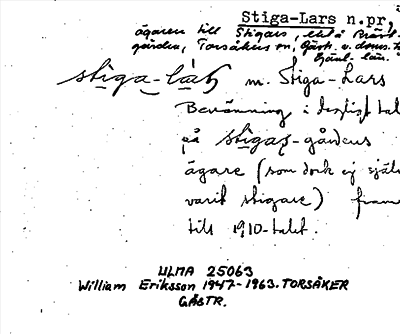 Stiga-Lars n.pr,
ägaren till Stigars,
gården, Torsåkers sn, Gästr. v. doms.
Gävl.-län.
stiga-làs̀ m. Stiga-Lars
Benämning i dagligt tal
på stigas-gårdens
ägare (som dock ej själv
varit stigare) fram
till 1910-talet.
ULMA 25063
William Eriksson 1947-1963. TORSÅKER
GÄSTR.